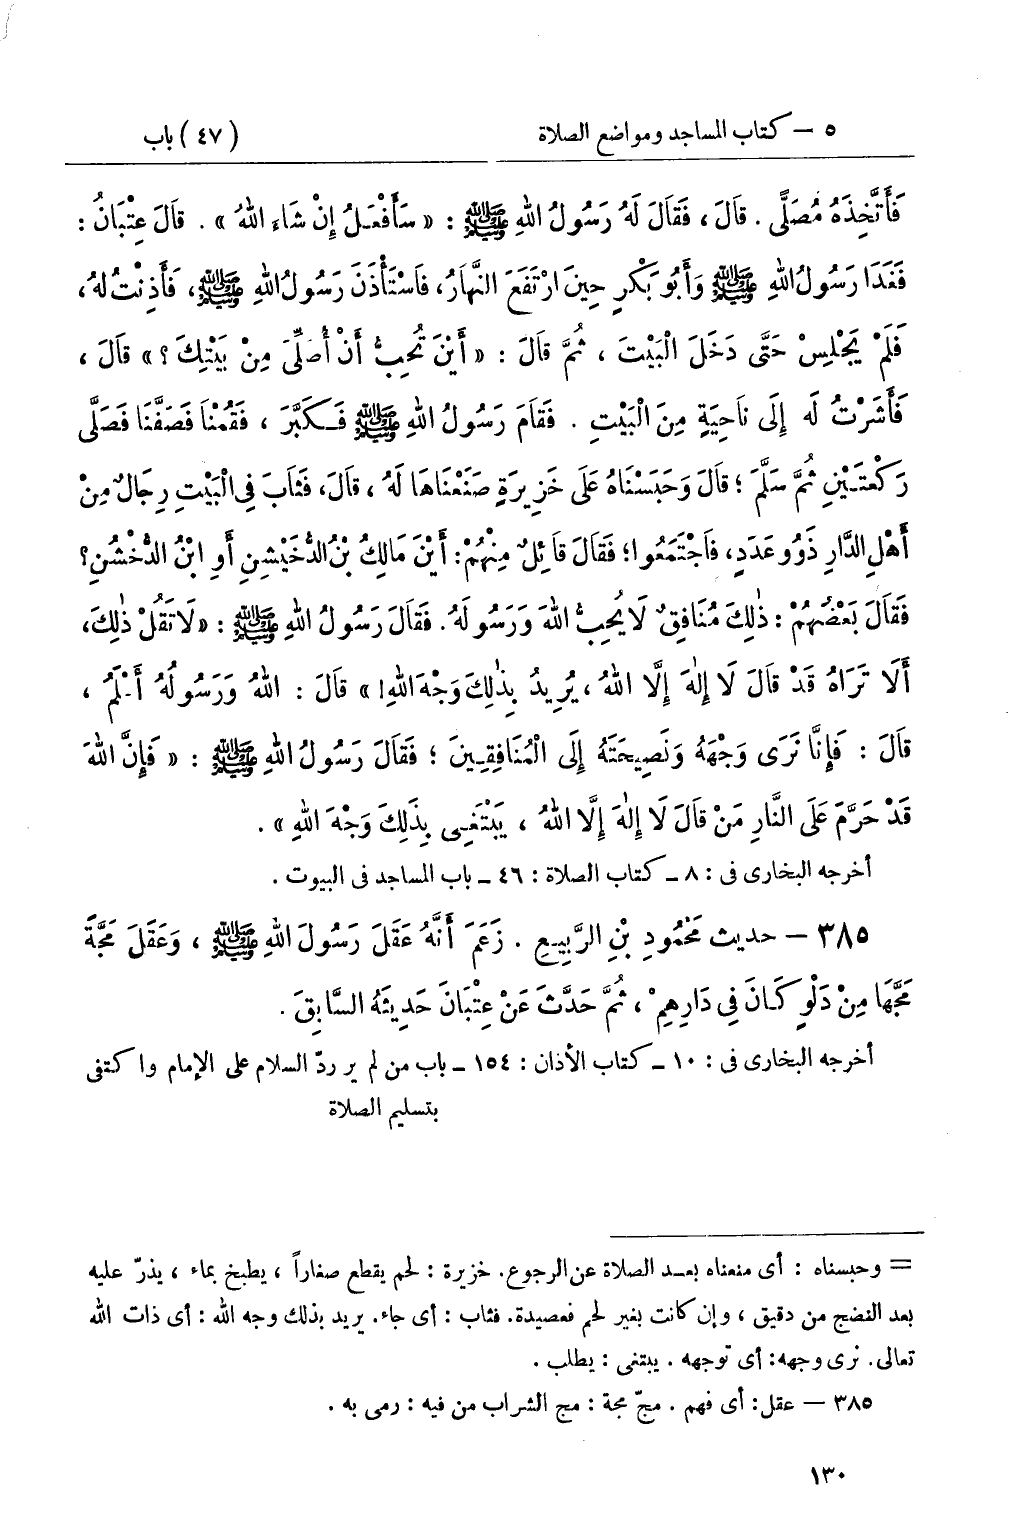 ٥ — كتاب المساجد ومواضع الصلاة (٤٧) باب
فَأَتَّخِذَهُ مُصَلًّى . قَالَ ، فَقَالَ لَهُ رَسُولُ اللهِ ﷺ : « سَأَفْعَلُ إِنْ شَاءَ اللهُ » . قَالَ عِتْبَانُ :
فَغَدَا رَسُولُ اللهِ ﷺ وَأَبُو بَكْرٍ حِينَ ارْتَفَعَ النَّهَارُ، فَاسْتَأْذَنَ رَسُولُ اللهِ ﷺ، فَأَذِنْتُ لَهُ،
فَلَمْ يَجْلِسْ حَتَّى دَخَلَ الْبَيْتَ ، ثُمَّ قَالَ : « أَيْنَ تُحِبُّ أَنْ أُصَلِّىَ مِنْ بَيْتِكَ ؟ » قَالَ ،
فَأَشَرْتُ لَه إِلَى نَاحِيَةٍ مِنَ الْبَيْتِ . فَقَامَ رَسُولُ اللهِ ﷺ فَكَبَّرَ ، فَقُمْنَا فَصَفَّنَا فَصَلَّى
رَكْعَتَيْنِ ثُمَّ سَلَّمَ ؛ قَالَ وَحَبَسْنَاهُ عَلَى خَزِيرَةٍ صَنَعْنَاهَا لَهُ ، قَالَ، فَثَابَ فِى الْبَيْتِ رِجَالٌ مِنْ
أَهْلِ الدَّارِ ذَوُو عَدَدٍ، فَاجْتَمَعُوا؛ فَقَالَ قَائِلٌ مِنْهُمْ: أَيْنَ مَالِكُ بْنُ الدُّخَيْشِنِ أَوِ ابْنُ الدُّخْشُنِ؟
فَقَالَ بَعْضُهُمْ : ذٰلِكَ مُنَافِقٌ لَا يُحِبُّ اللهَ وَرَسُولَهُ. فَقَالَ رَسُولُ اللهِ ﷺ : « لَا تَقُلْ ذٰلِكَ،
أَلَا تَرَاهُ قَدْ قَالَ لَا إِلٰهَ إِلَّا اللهُ ، يُرِيدُ بِذٰلِكَ وَجْهَ اللهِ! » قَالَ : اللهُ وَرَسُولُهُ أَعْلَمُ ،
قَالَ : فَإِنَّا نَرَى وَجْهَهُ وَنَصِيحَتَهُ إِلَى الْمُنَافِقِينَ ؛ فَقَالَ رَسُولُ اللهِ ﷺ : « فَإِنَّ اللهَ
قَدْ حَرَّمَ عَلَى النَّارِ مَنْ قَالَ لَا إِلٰهَ إِلَّا اللهُ ، يَبْتَغِى بِذَلِكَ وَجْهَ اللهِ » .
أخرجه البخارى فى : ٨ ـ كتاب الصلاة : ٤٦ ـ باب المساجد فى البيوت .
٣٨٥ — حديث مَحْمُودِ بْنِ الرَّبِيعِ . زَعَمَ أَنَّهُ عَقَلَ رَسُولَ اللهِ ﷺ ، وَعَقَلَ مَجَّةً
مَجَّهَا مِنْ دَلْوٍ كَانَ فِى دَارِهِمْ ، ثُمَّ حَدَّثَ عَنْ عِتْبَانَ حَدِيثَهُ السَّابِقَ .
أخرجه البخارى فى : ١٠ ـ كتاب الأذان : ١٥٤ ـ باب من لم ير ردّ السلام على الإمام واكتفى
بتسليم الصلاة
= وحبسناه : أى منعناه بعد الصلاة عن الرجوع. خزيرة : لحم يقطع صغاراً ، يطبخ بماء ، يذرّ عليه
بعد النضج من دقيق ، وإن كانت بغير لحم فعصيدة. فثاب : أى جاء. يريد بذلك وجه الله : أى ذات الله
تعالى. نرى وجهه: أى توجهه . يبتغى : يطلب .
٣٨٥ — عقل: أى فهم . مجّ مجة : مج الشراب من فيه : رمى به .
١٣٠